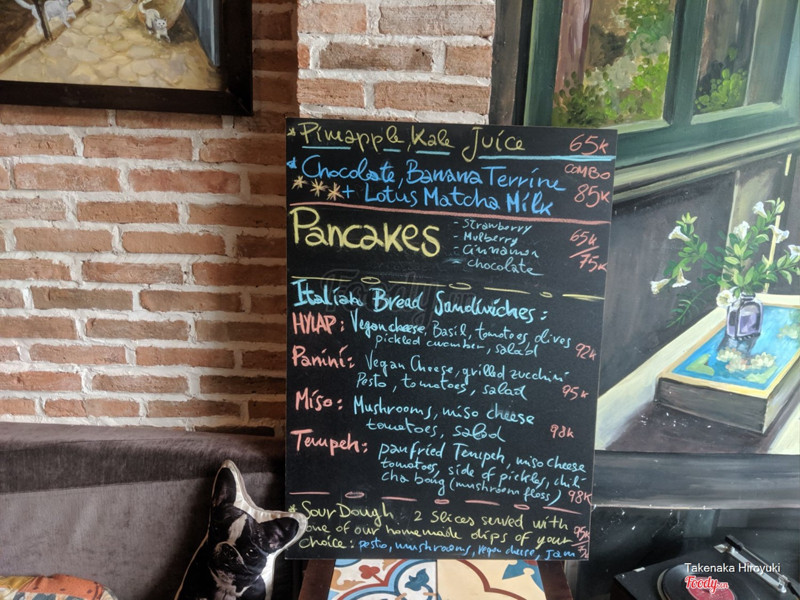 * Pineapple, Kale Juice 65k
* Chocolate, Banana Terrine COMBO
+ Lotus Matcha Milk 85k
Pancakes
- Strawberry
- Mulberry
- Cinnamon
- chocolate
65k
75k
Italian Bread Sandwiches:
HYLAP: Vegan cheese, Basil, tomatoes, olives
pickled cucumber, salad 92k
Panini: Vegan Cheese, grilled zucchini
Pesto, tomatoes, salad 95k
Miso: Mushrooms, miso cheese
tomatoes, salad 98k
Tempeh: panfried Tempeh, miso cheese
tomatoes, side of pickles, chili
cha bong (mushroom floss) 98k
* SourDough 2 slices served with
one of our homemade dips of your
choice: pesto, mushrooms, vegan cheese, jam
Takenaka Hiroyuki
Foody.vn